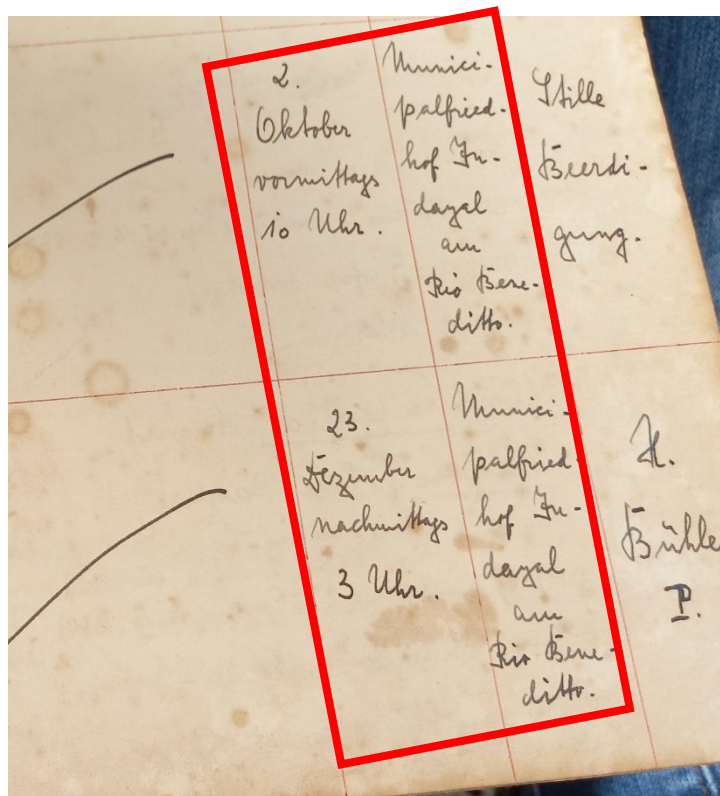 2.
Oktober
vormittags
10 Uhr.
Munici-
palfried-
hof In-
dayal
am
Rio Bene-
ditto.
Stille
Beerdi-
gung.
23.
Dezember
nachmittags
3 Uhr.
Munici-
palfried-
hof In-
dayal
am
Rio Bene-
ditto.
H.
Bühle
P.